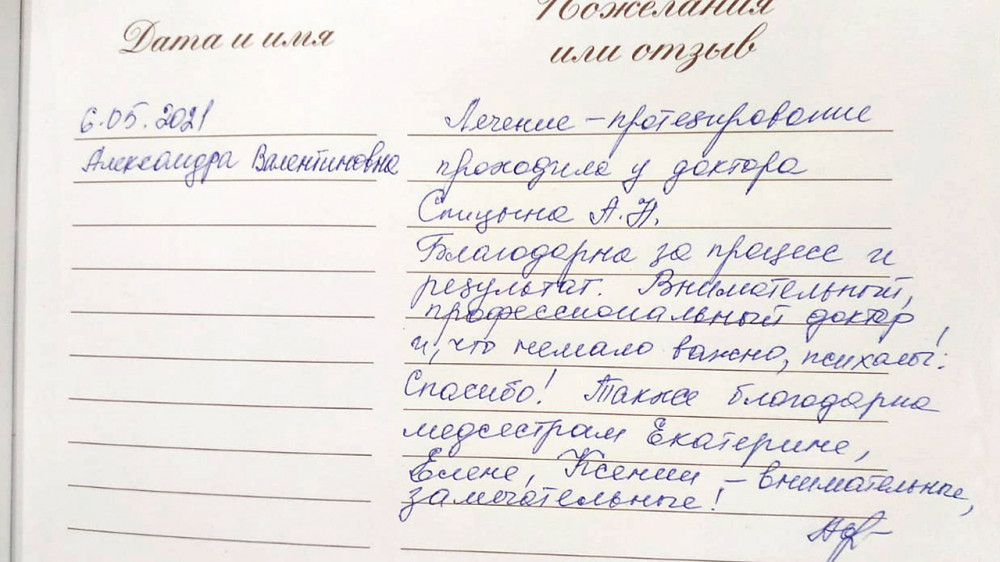 Дата и имя
Пожелания
или отзыв
6.05.2021
Александра Валентиновна
Лечение – протезирование
проходила у доктора
Спицына А.Н.
Благодарна за процесс и
результат. Внимательный,
профессиональный доктор
и, что немало важно,
Спасибо! Также благодарна
медсестрам Екатерине,
Елене, Ксении – внимательные,
замечательные!